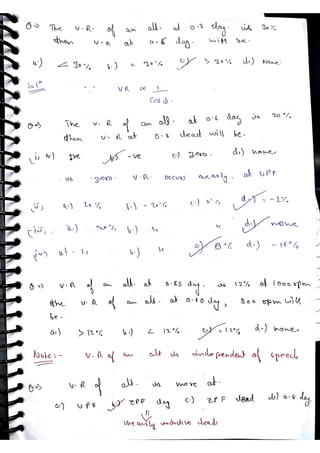 Q=> The V.R. of an alt. at 0.8 lag. is 20%
then V.R at 0.6 lag. will be.
a.) < 20% b.) = 20% c.) > 20% d.) None.
Solⁿ ∵ VR ∝ 1/cosφ.
Q=> The V.R of an alt. at 0.8 lag is 20%
then V.R at 0.8 lead will be.
(i) a.) +ve b.) -ve c.) zero. d.) none.
as zero V.R. occurs nearly at UPF
(ii) a.) 20% b.) -20% c.) 0% d.) = -2%
(iii) a.) 20% b.) " " d.) none
(iv) a.) " b.) " c.) 8% d.) -18%
Q=> V.R of an alt. at 0.85 lag. is 12% at 1000 rpm
the V.R of an alt. at 0.85 lag, 900 rpm will
be.
a.) >12% b.) < 12% c.) =12% d.) none.
Note:- V.R of an alt is independent of speed
Q=> V.R of alt. is more at.
a.) UPF b.) ZPF lag c.) ZPF lead d.) 0.8 lag
nearly inductive load